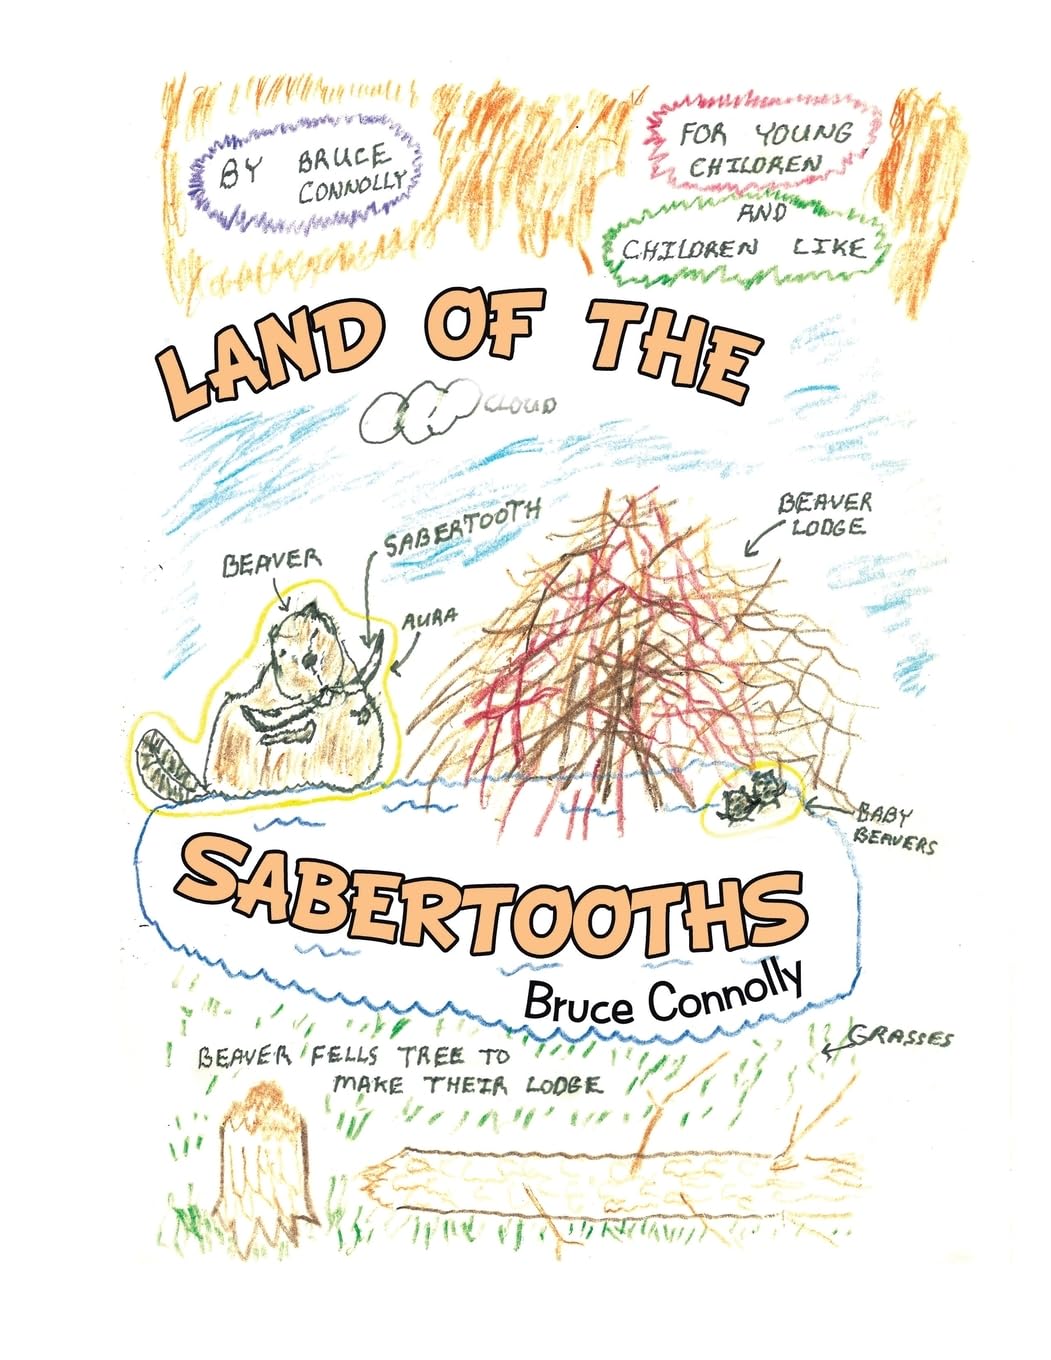 BY BRUCE
CONNOLLY
FOR YOUNG
CHILDREN
AND
CHILDREN LIKE
LAND OF THE
CLOUD
BEAVER
SABERTOOTH
AURA
BEAVER
LODGE
BABY
BEAVERS
SABERTOOTHS
Bruce Connolly
GRASSES
BEAVER FELLS TREE TO
MAKE THEIR LODGE